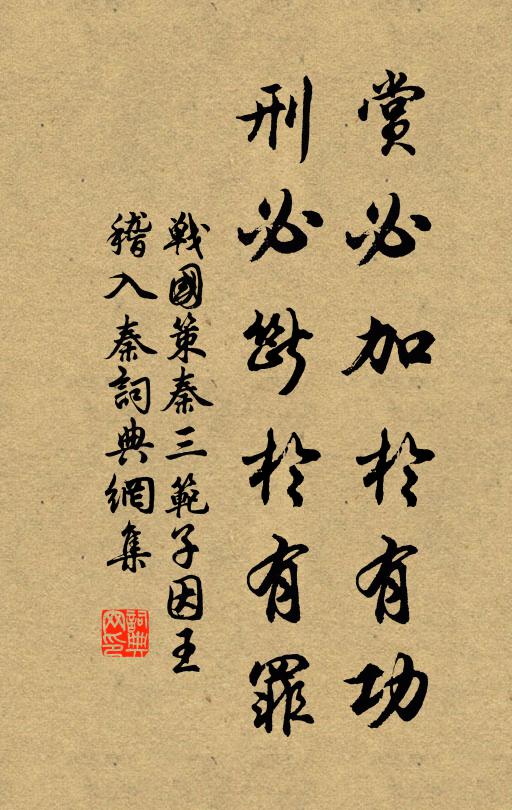 賞必加於有功
刑必斷於有罪
戰國策秦三範子因王
稽入秦詞典網集
詞典網印